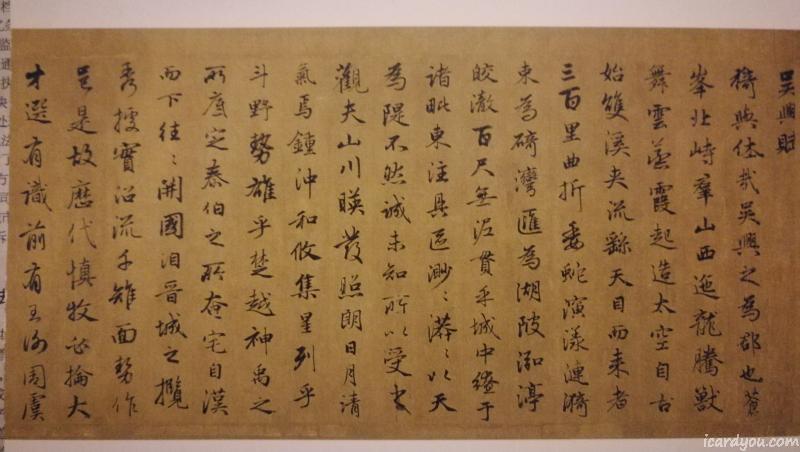 吳興賦
猗與休哉吳興之為郡也蒼
峯北峙羣山西迤龍騰獸
舞雲蒸霞起造太空自古
始雙溪夾流繇天目而來者
三百里曲折委蛇演漾漣漪
束為碕灣匯為湖陂泓渟
皎澈百尺無泥貫乎城中繚于
諸毗東注具區渺〻漭〻以天
為隄不然誠未知所以受之
觀夫山川暎發照朗日月清
氣焉鍾沖和攸集星列乎
斗野勢雄乎楚越神禹之
所底定泰伯之所奄宅自漢
而下往〻開國洎晉城之攬
秀據實沿流千雉面勢作
邑是故歷代慎牧必掄大
才選有識前有王謝周虞
icardyou.com